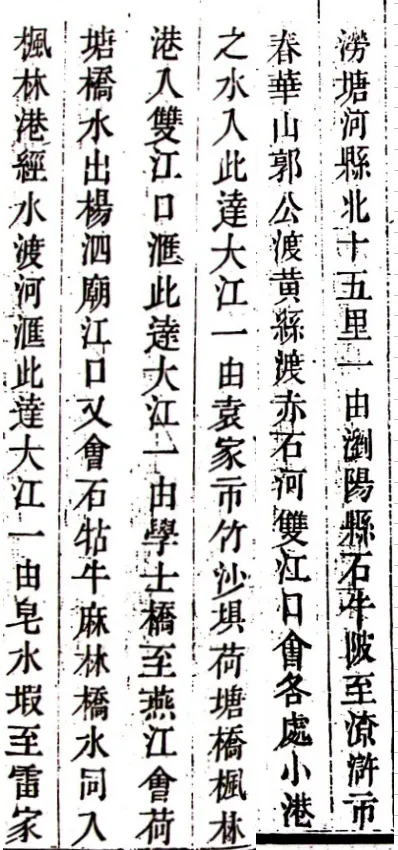 澇塘河縣北十五里一由瀏陽縣石牛陂至潦滸市
春華山郭公渡黃縣渡赤石河雙江口會各處小港
之水入此達大江一由袁家市竹沙垻荷塘橋楓林
港入雙江口滙此達大江一由學士橋至燕江會荷
塘橋水出楊泗廟江口又會石牯牛麻林橋水同入
楓林港經水渡河滙此達大江一由皂水塅至雷家